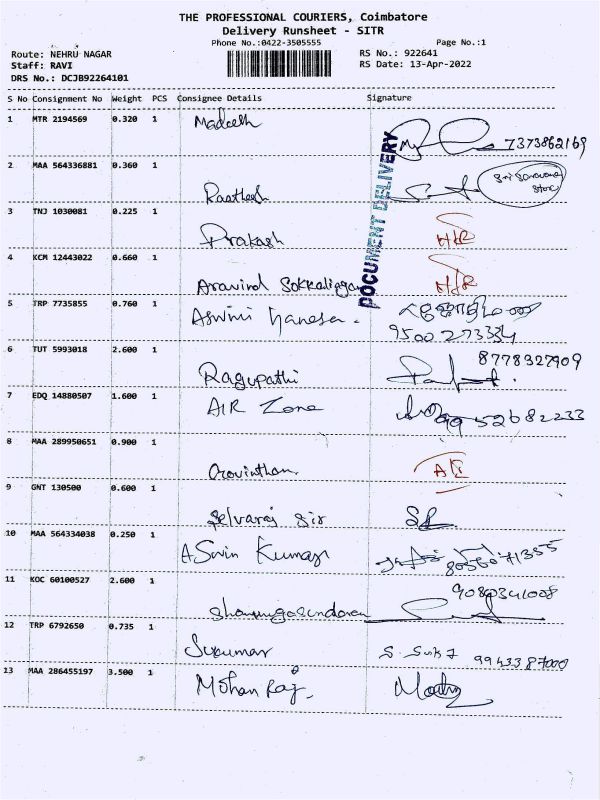 THE PROFESSIONAL COURIERS, Coimbatore
Delivery Runsheet - SITR
Phone No.:0422-3505555 Page No.:1
Route: NEHRU NAGAR RS No.: 922641
Staff: RAVI RS Date: 13-Apr-2022
DRS No.: DCJB92264101
S No Consignment No Weight PCS Consignee Details Signature
1 MTR 2194569 0.320 1 Madeesh 7373862169
DOCUMENT DELIVERY
2 MAA 564336881 0.360 1 Sri Saravana
Raathesh Store
3 TNJ 1030081 0.225 1
Prakash
4 KCM 12443022 0.660 1
Aravind Sokkalingam
5 TRP 7735855 0.760 1 Aswini Ganesa.
9500273334
6 TUT 5993018 2.600 1 8778327909
Ragupathi
7 EDQ 14880507 1.600 1 AIR Zone 9952682233
8 MAA 289950651 0.900 1
Aravinthan
9 GNT 130500 0.600 1
Selvaraj Sir
10 MAA 564334038 0.250 1 A Savin Kumar 8056071355
11 KOC 60100527 2.600 1 9080341008
Shanmugasundaram
12 TRP 6792650 0.735 1
Sukumar 9943387000
13 MAA 286455197 3.500 1 Mohan Raj.